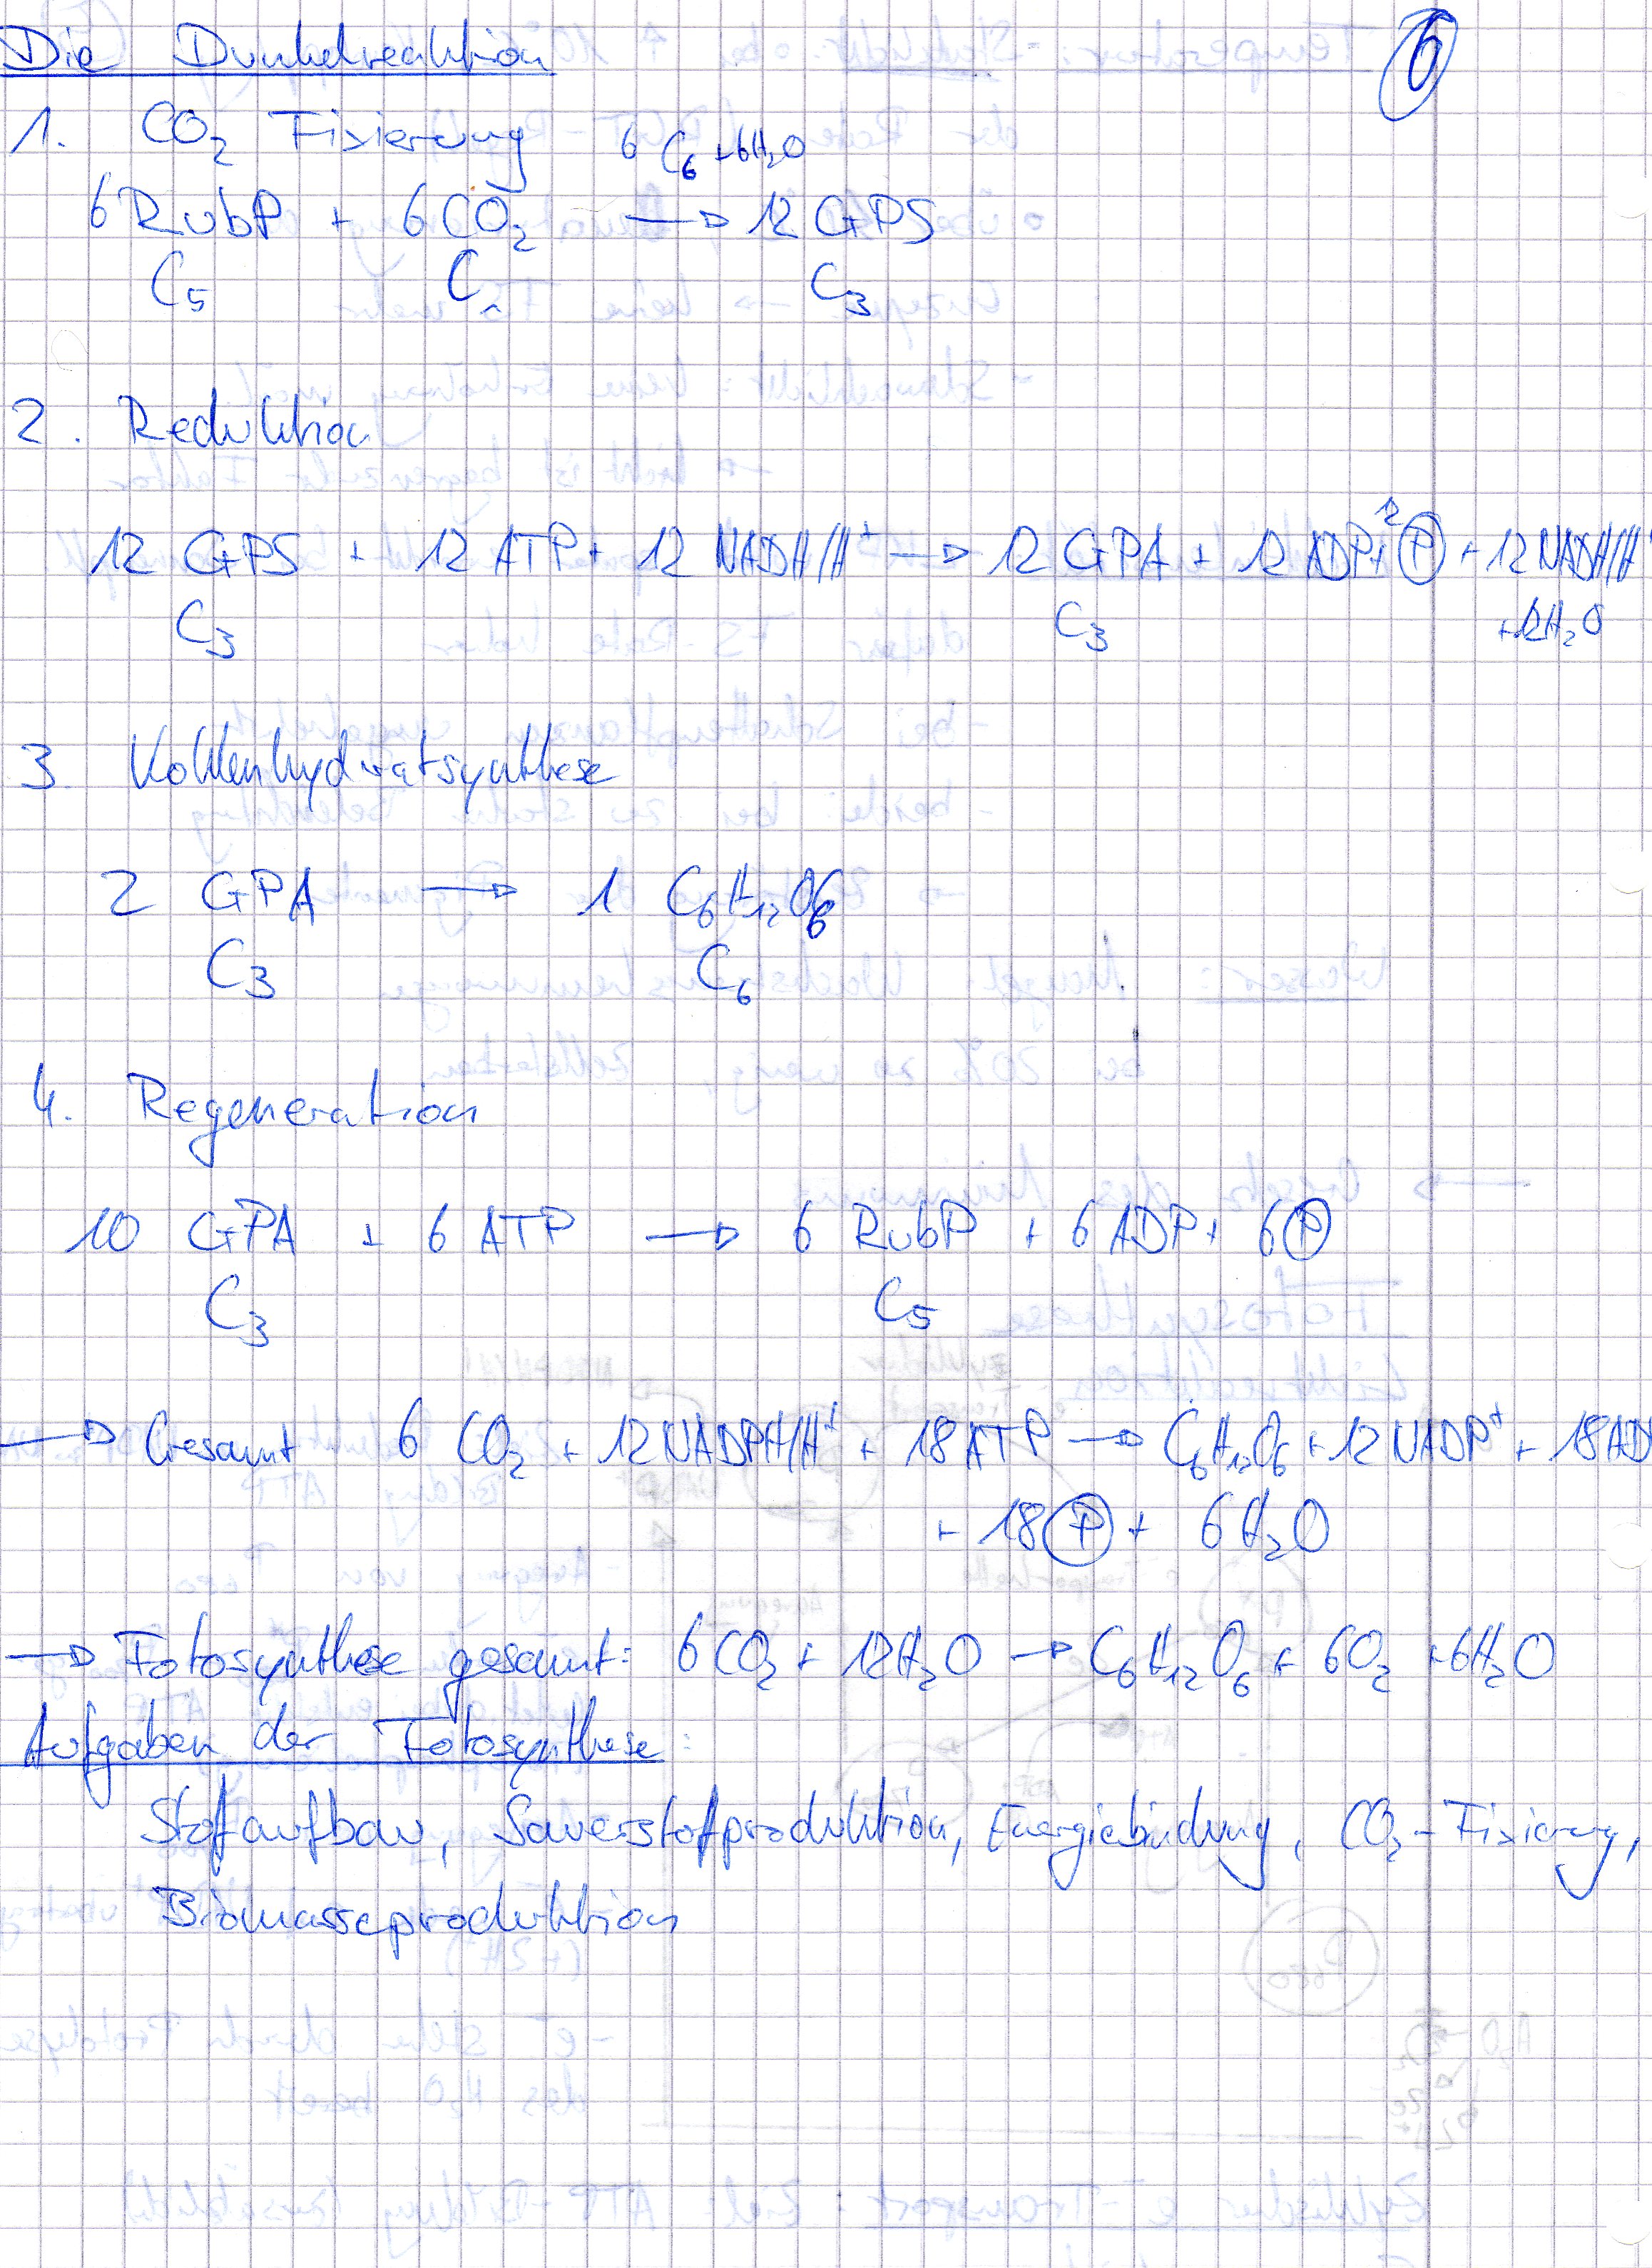 Die Dunkelreaktion
6
1. CO₂ Fixierung 6 C₆ + 6H₂O
6 RubP + 6 CO₂ → 12 GPS
C₅ C₁ C₃
2. Reduktion
12 GPS + 12 ATP + 12 NADH/H⁺ → 12 GPA + 12 ADP + 12 Ⓟ + 12 NADH/H⁺
C₃ C₃ + 12H₂O
3. Kohlenhydratsynthese
2 GPA → 1 C₆H₁₂O₆
C₃ C₆
4. Regeneration
10 GPA + 6 ATP → 6 RubP + 6 ADP + 6 Ⓟ
C₃ C₅
→ Gesamt 6 CO₂ + 12 NADPH/H⁺ + 18 ATP → C₆H₁₂O₆ + 12 NADP⁺ + 18 AD
+ 18 Ⓟ + 6 H₂O
→ Fotosynthese gesamt: 6 CO₂ + 12 H₂O → C₆H₁₂O₆ + 6O₂ + 6H₂O
Aufgaben der Fotosynthese:
Stofaufbau, Sauerstoffproduktion, Energiebindung, CO₂-Fixierung,
Biomasseproduktion